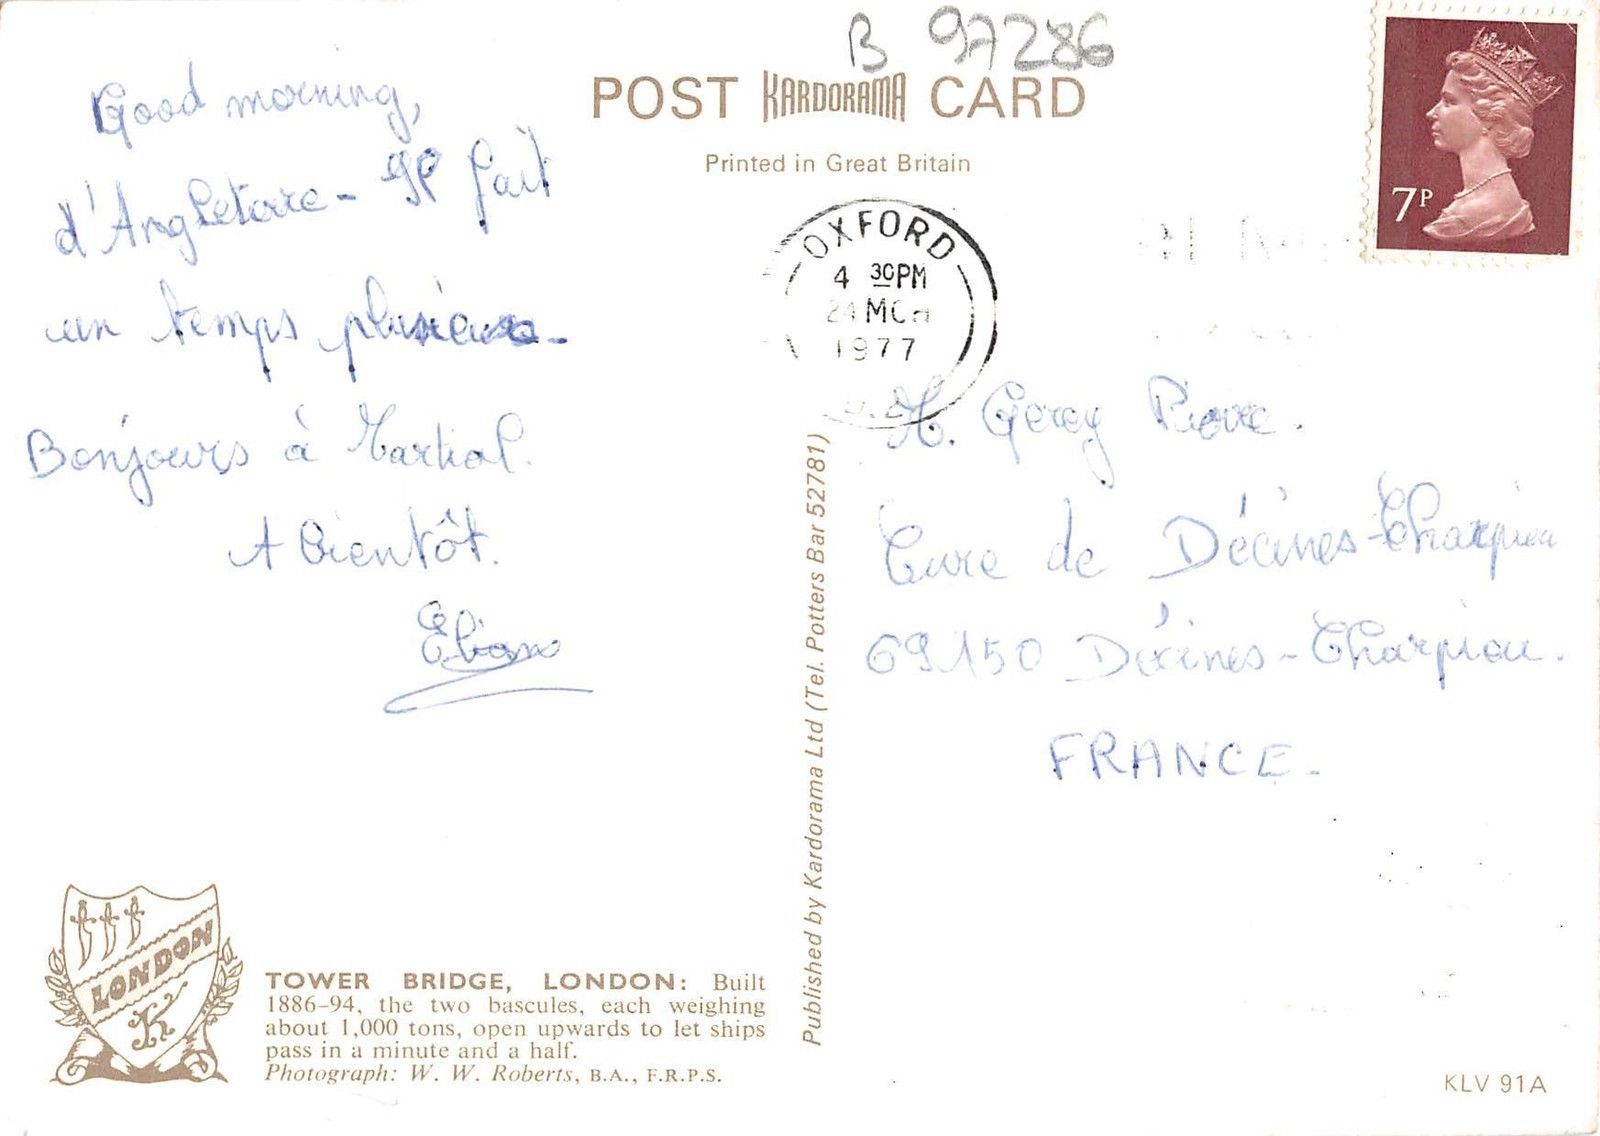 B 97286
POST KARDORAMA CARD
Printed in Great Britain
7P
OXFORD
4 30PM
24 MCH
1977
Good morning,
d'Angleterre - Il fait
un temps pluvieux.
Bonjours à Martial.
A bientôt.
M. Gerey Pierre.
Cure de Décines-Charpieu
69150 Décines-Charpieu.
FRANCE.
Published by Kardorama Ltd (Tel. Potters Bar 52781)
LONDON
K
TOWER BRIDGE, LONDON: Built
1886–94, the two bascules, each weighing
about 1,000 tons, open upwards to let ships
pass in a minute and a half.
Photograph: W. W. Roberts, B.A., F.R.P.S.
KLV 91A